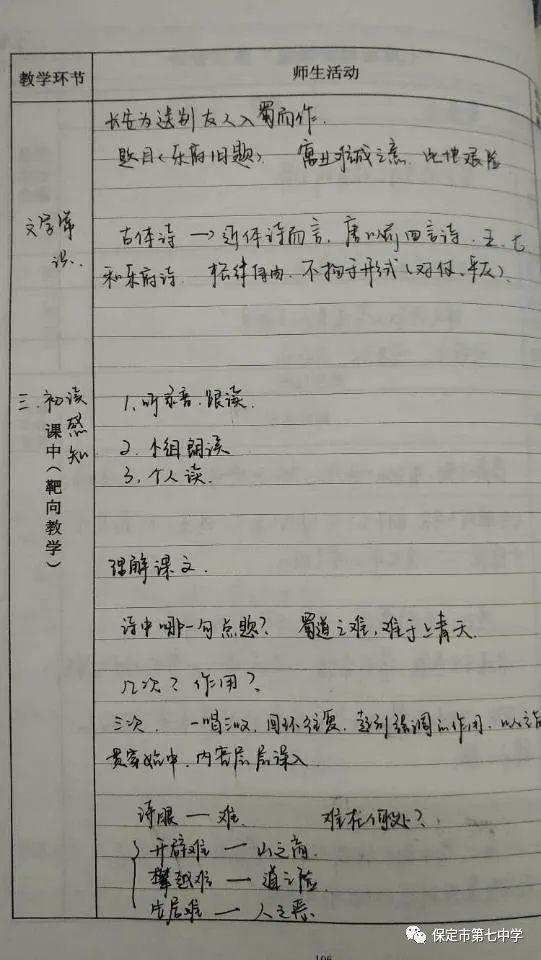 教学环节 师生活动
长安为送别友人入蜀而作.
题目《乐府旧题》 寓且戒之意, 此地艰险
文学常识.
古体诗 → 近体诗而言, 唐以前四言诗. 五. 七
和乐府诗. 格律自由, 不拘于形式(对仗、平仄).
三. 初读感知
课中(靶向教学)
1. 听录音. 跟读.
2. 小组朗读
3. 个人读.
理解课文.
诗中哪一句点题? 蜀道之难, 难于上青天.
几次? 作用?
三次. 一唱三叹, 回环往复, 起到强调的作用,
贯穿始中, 内容层层深入.
诗眼 — 难. 难在何处?
开辟难 — 山之高.
攀越难 — 道之险.
生居难 — 人之恶.
106
保定市第七中学